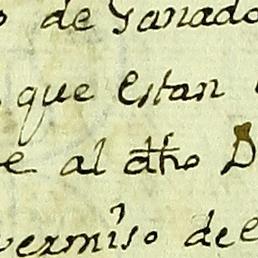 de Ganado
que estan
al dho D
permiso de